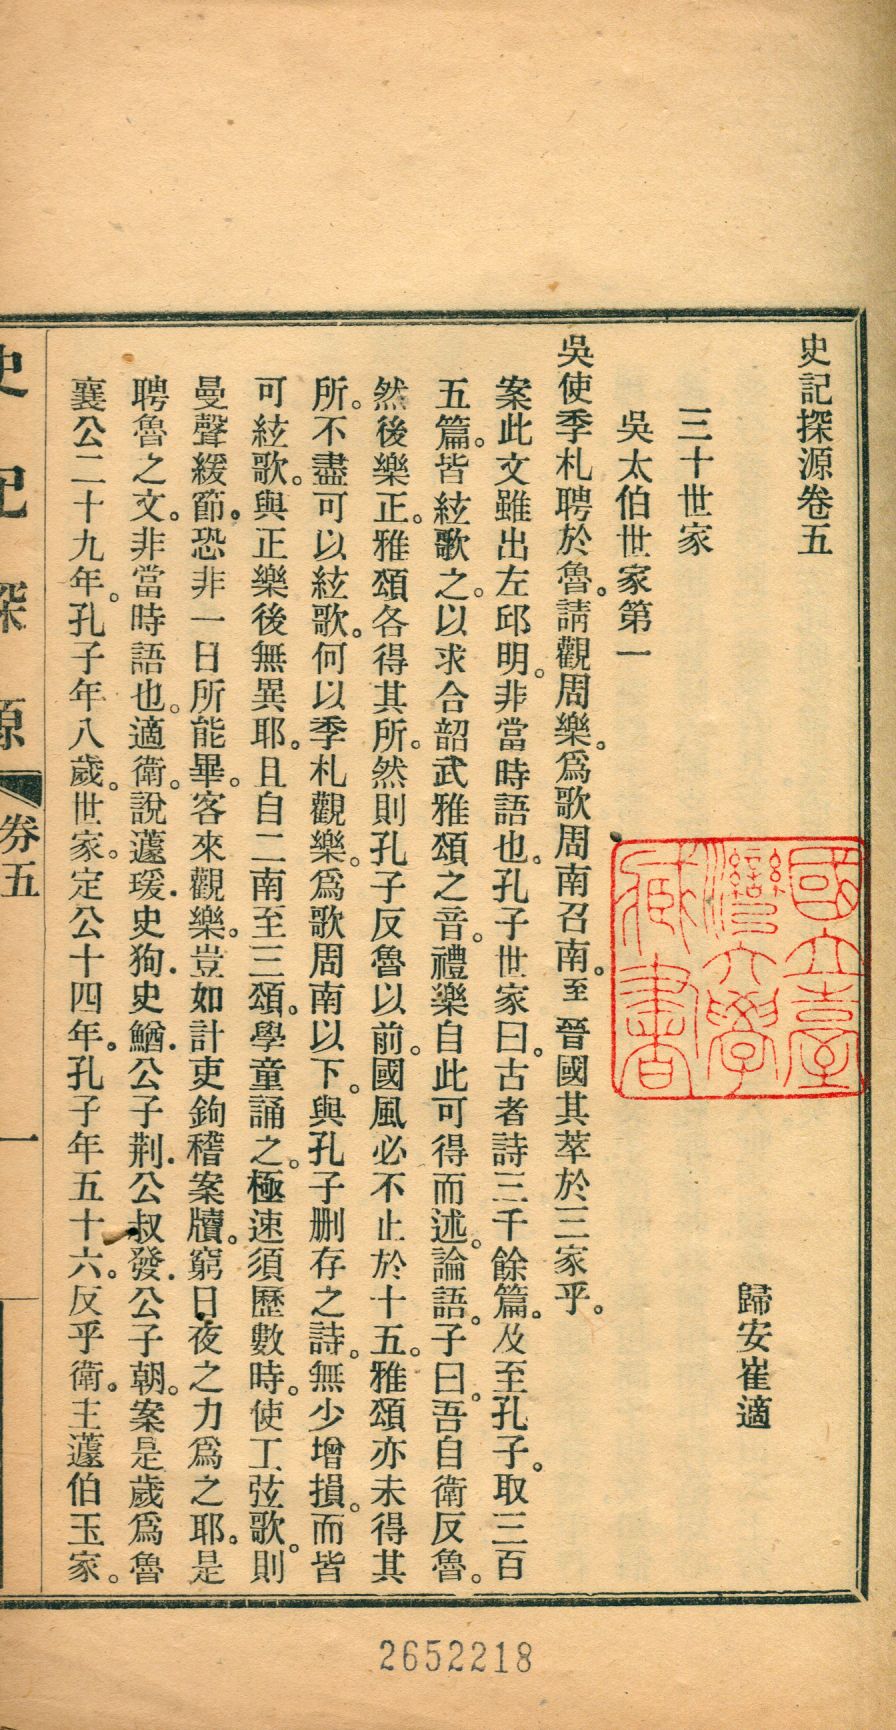 史記探源卷五
歸安崔適
三十世家
吳太伯世家第一
吳使季札聘於魯。請觀周樂。爲歌周南召南。至 晉國其萃於三家乎。
案此文雖出左邱明。非當時語也。孔子世家曰。古者詩三千餘篇。及至孔子。取三百
五篇。皆絃歌之。以求合韶武雅頌之音。禮樂自此可得而述。論語。子曰。吾自衛反魯。
然後樂正。雅頌各得其所。然則孔子反魯以前。國風必不止於十五。雅頌亦未得其
所。不盡可以絃歌。何以季札觀樂。爲歌周南以下。與孔子删存之詩。無少增損。而皆
可絃歌。與正樂後無異耶。且自二南至三頌。學童誦之。極速須歷數時。使工弦歌。則
曼聲緩節。恐非一日所能畢。客來觀樂。豈如計吏鉤稽案牘。窮日夜之力爲之耶。是
聘魯之文。非當時語也。適衛。說蘧瑗．史狗．史鰌．公子荆．公叔發．公子朝。案是歲爲魯
襄公二十九年。孔子年八歲。世家。定公十四年。孔子年五十六。反乎衛。主蘧伯玉家。
史記探源
卷五
一
國立臺
灣大學
臧書
2652218